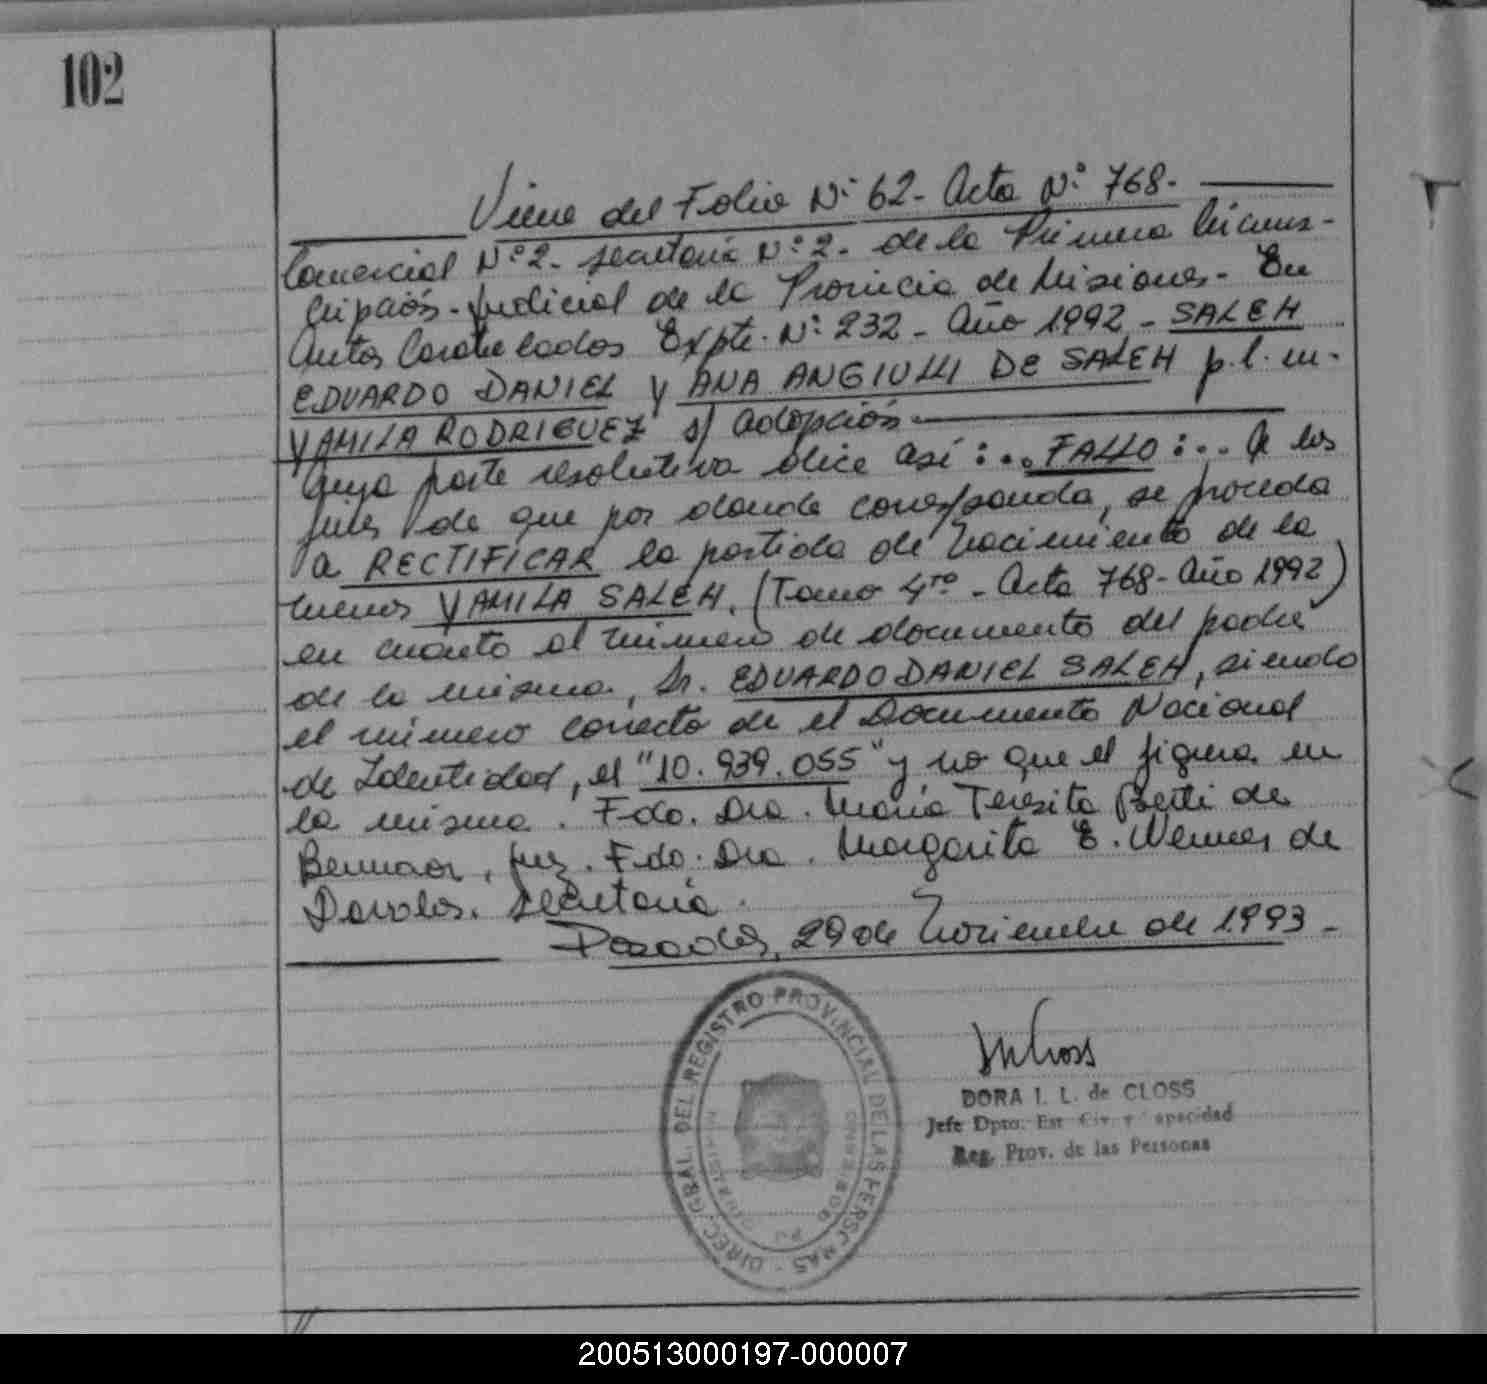 102
Viene del Folio Nº 62- Acta Nº 768-
Comercial Nº 2- Secretaria Nº 2- de la Primera Circuns-
cripción- Judicial de la Provincia de Misiones- En
Autos Caratulados Expte. Nº 232 - Año 1992 - SALEH
EDUARDO DANIEL y ANA ANGIULLI DE SALEH p.l.m.
YAMILA RODRIGUEZ s/ adopción
Cuya parte resolutiva dice así:... FALLO:... A los
fines de que por donde corresponda, se proceda
a RECTIFICAR la partida de nacimiento de la
menor YAMILA SALEH. (Tomo 4to - Acta 768- Año 1992)
en cuanto al número de documento del padre
de la misma, Sr. EDUARDO DANIEL SALEH, siendo
el número correcto de el Documento Nacional
de Identidad, el "10.939.055" y no que el figura en
la misma. Fdo. Dra. María Teresita Betti de
Juez. Fdo. Dra. Margarita E. Werner de
Davalos. Secretaria.
Posadas, 29 de Noviembre de 1993-
DIREC. GRAL. DEL REGISTRO PROVINCIAL DE LAS PERSONAS
DORA I. L. de CLOSS
Jefe Dpto. Est Civ. y apacidad
Reg. Prov. de las Personas
200513000197-000007